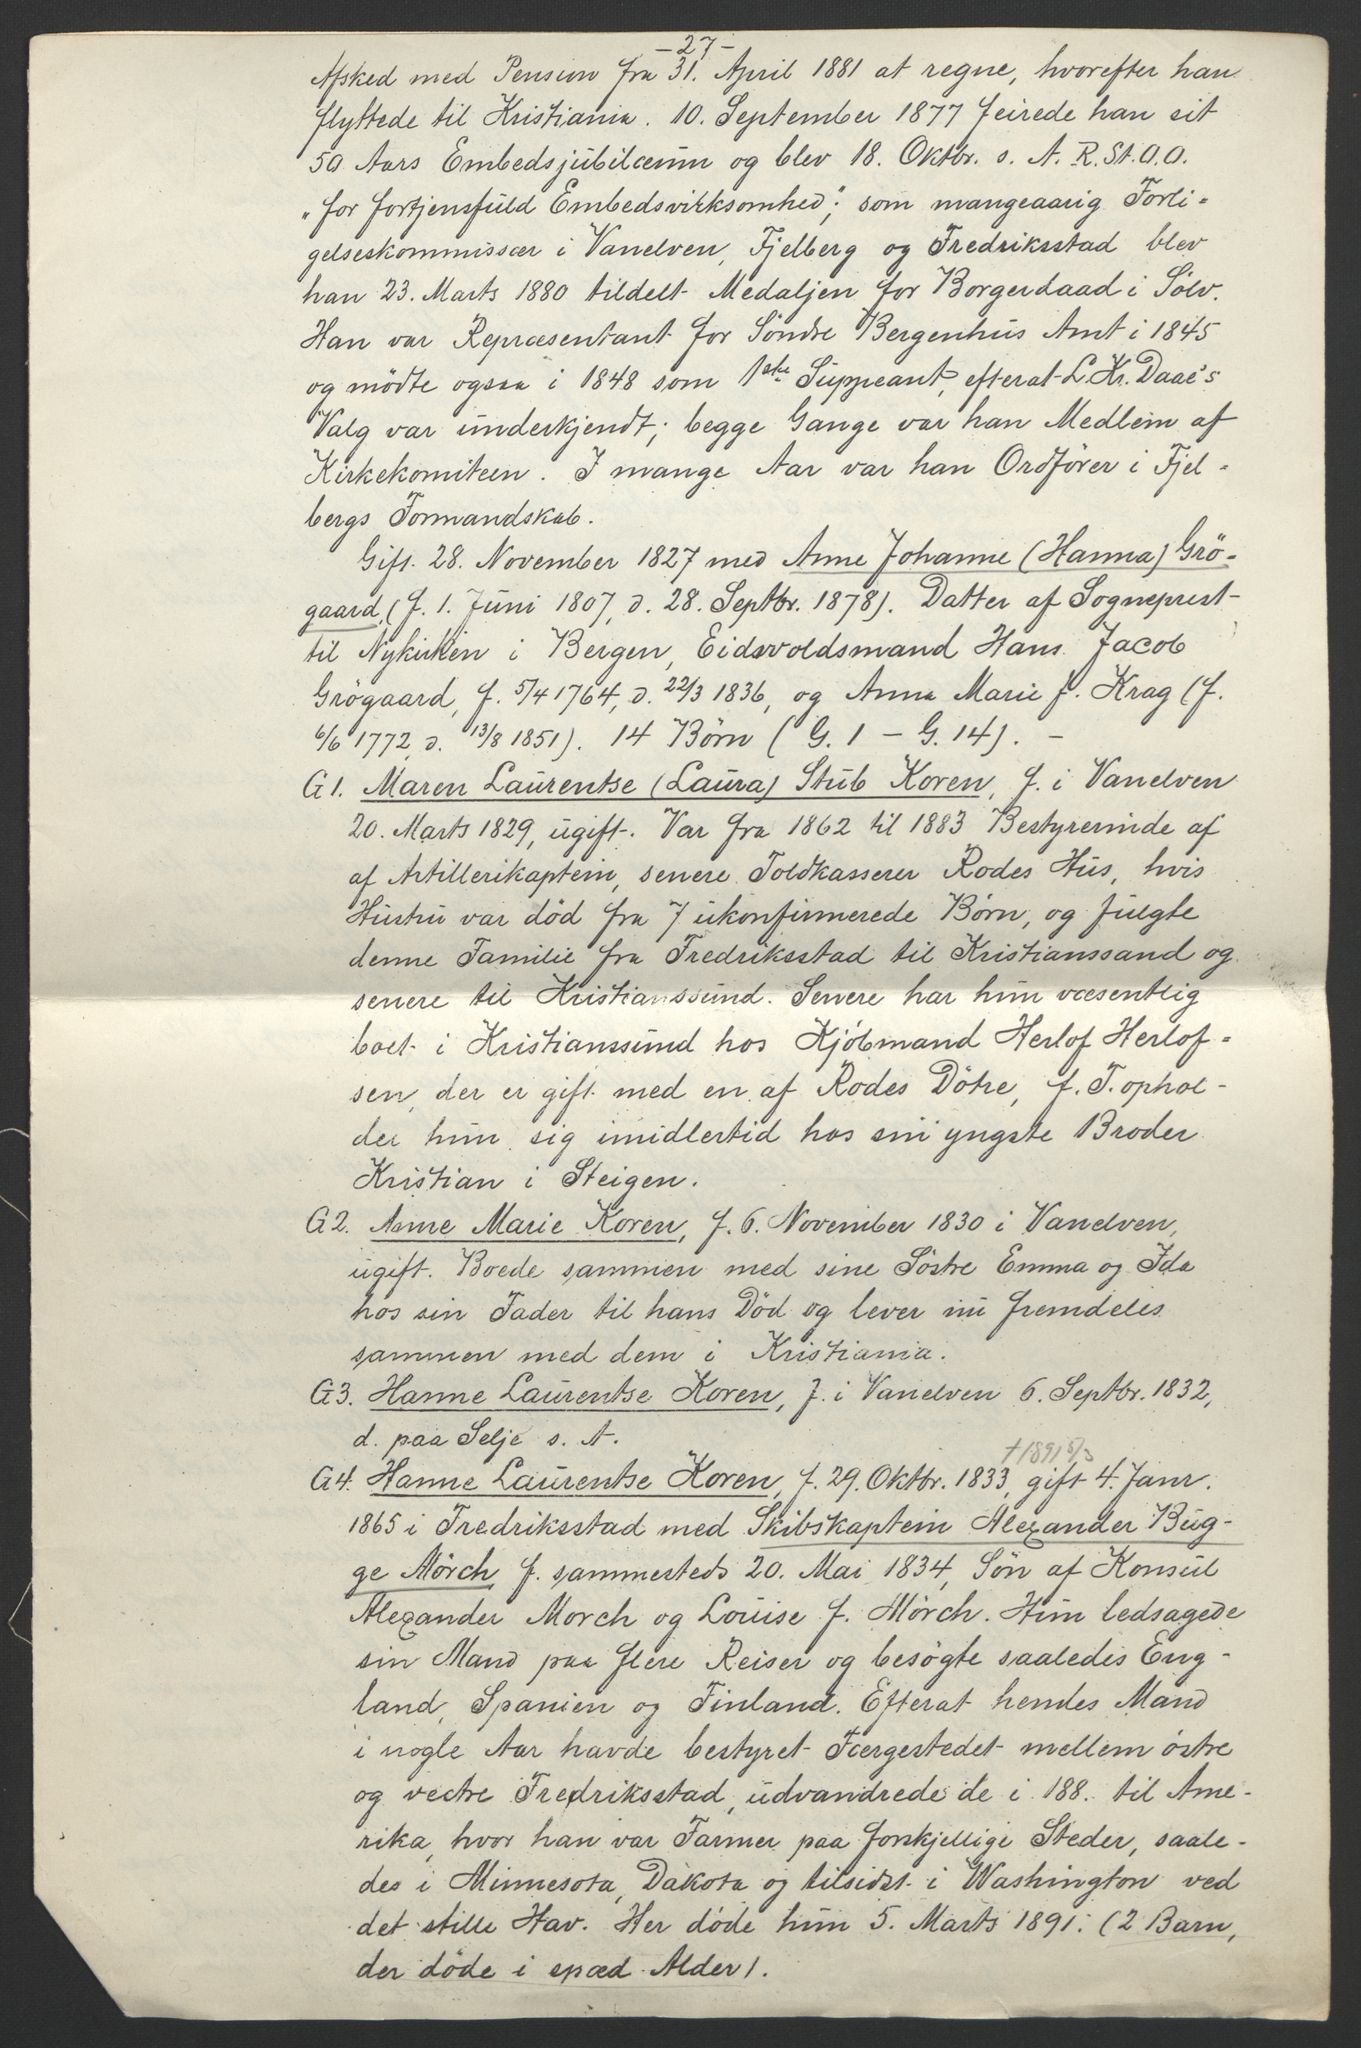 -27-
Afsked med Pension fra 31. April 1881 at regne, hvorefter han
flyttede til Kristiania. 10. September 1877 feirede han sit
50 Aars Embedsjubilæum og blev 18. Oktbr. s. A. R. St. O. O.
"for fortjensfuld Embedsvirksomhed"; som mangeaarig Forli-
gelseskommissær i Vanelven, Fjelberg og Fredriksstad blev
han 23. Marts 1880 tildelt Medaljen for Borgerdaad i Sølv.
Han var Repræsentant for Søndre Bergenhus Amt i 1845
og mødte ogsaa i 1848 som 1ste Suppeant, efterat L. Kr. Daae's
Valg var underkjendt; begge Gange var han Medlem af
Kirkekomiteen. I mange Aar var han Ordfører i Fjel-
bergs Formandskab.
Gift 28. November 1827 med Anne Johanne (Hanna) Grø-
gaard, (f. 1. Juni 1807, d. 28. Septbr. 1878). Datter af Sogneprest
til Nykirken i Bergen, Eidsvoldsmand Hans Jacob
Grøgaard, f. 5/4 1764, d. 22/3 1836, og Anna Marie f. Krag (f.
6/6 1772, d. 13/8 1851). 14 Børn (G. 1 - G. 14). -
G1. Maren Laurentse (Laura) Stub Koren, f. i Vanelven
20. Marts 1829, ugift. Var fra 1862 til 1883 Bestyrerinde af
af Artillerikaptein, senere Toldkasserer Rodes Hus, hvis
Hustru var død fra 7 ukonfirmerede Børn, og fulgte
denne Familie fra Fredriksstad til Kristianssand og
senere til Kristianssund. Senere har hun væsentlig
boet i Kristianssund hos Kjøbmand Herlof Herlof-
sen, der er gift med en af Rodes Døtre, f. T. ophol-
der hun sig imidlertid hos sin yngste Broder
Kristian i Steigen.
G2. Anne Marie Koren, f. 6. November 1830 i Vanelven,
ugift. Boede sammen med sine Søstre Emma og Ida
hos sin Fader til hans Død og lever nu fremdeles
sammen med dem i Kristiania.
G3. Hanne Laurentse Koren, f. i Vanelven 6. Septbr. 1832,
d. paa Selje s. A.
† 1891 5/3
G4. Hanne Laurentse Koren, f. 29. Oktbr. 1833, gift 4. Janr.
1865 i Fredriksstad med Skibskaptein Alexander Bug-
ge Mörch f. sammesteds 20. Mai 1834, Søn af Konsul
Alexander Morch og Louise f. Mörch. Hun ledsagede
sin Mand paa flere Reiser og besøgte saaledes Eng-
land, Spanien og Finland. Efterat hendes Mand
i nogle Aar havde bestyret Færgestedet mellem østre
og vestre Fredriksstad, udvandrede de i 188. til Ame-
rika, hvor han var Farmer paa forskjellige Steder, saale-
des i Minnesota, Dakota og tilsidst i Washington ved
det stille Hav. Her døde hun 5. Marts 1891. (2 Barn,
der døde i spæd Alder).